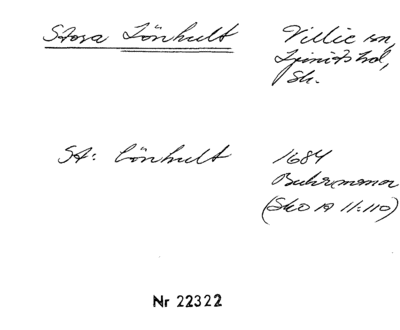 Stora Lönhult
Villie sn,
Ljunits hd,
Sk.
St: Lönhult
1684
Buhrmann
(SkO A 11:110)
Nr 22322